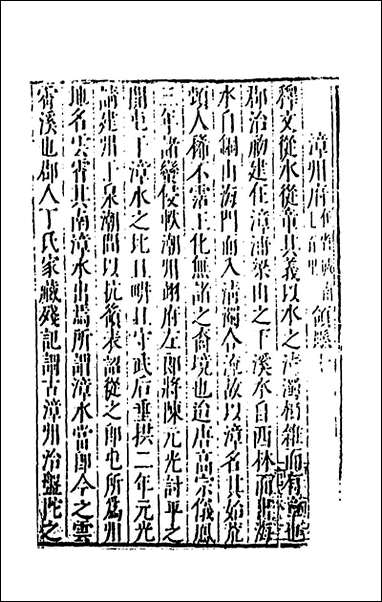 漳州府
釋文從水從章其義以水之清濁相雜而有章也
郡治初建在漳浦梁山之下溪水自西林而出海
水自銅山海門而入清濁合流故以漳名其始荒
頑人稀不霑王化無諸之裔境也迨唐高宗儀鳳
三年諸蠻侵軼潮州翊府左郎將陳元光討平之
開屯于漳水之北且畊且守武后垂拱二年元光
請建州于泉潮間以抗嶺表詔從之即屯所為州
地名雲霄其南漳水出焉所謂漳水當即今之雲
霄溪也郡人丁氏家藏殘記謂古漳州治盤陀之